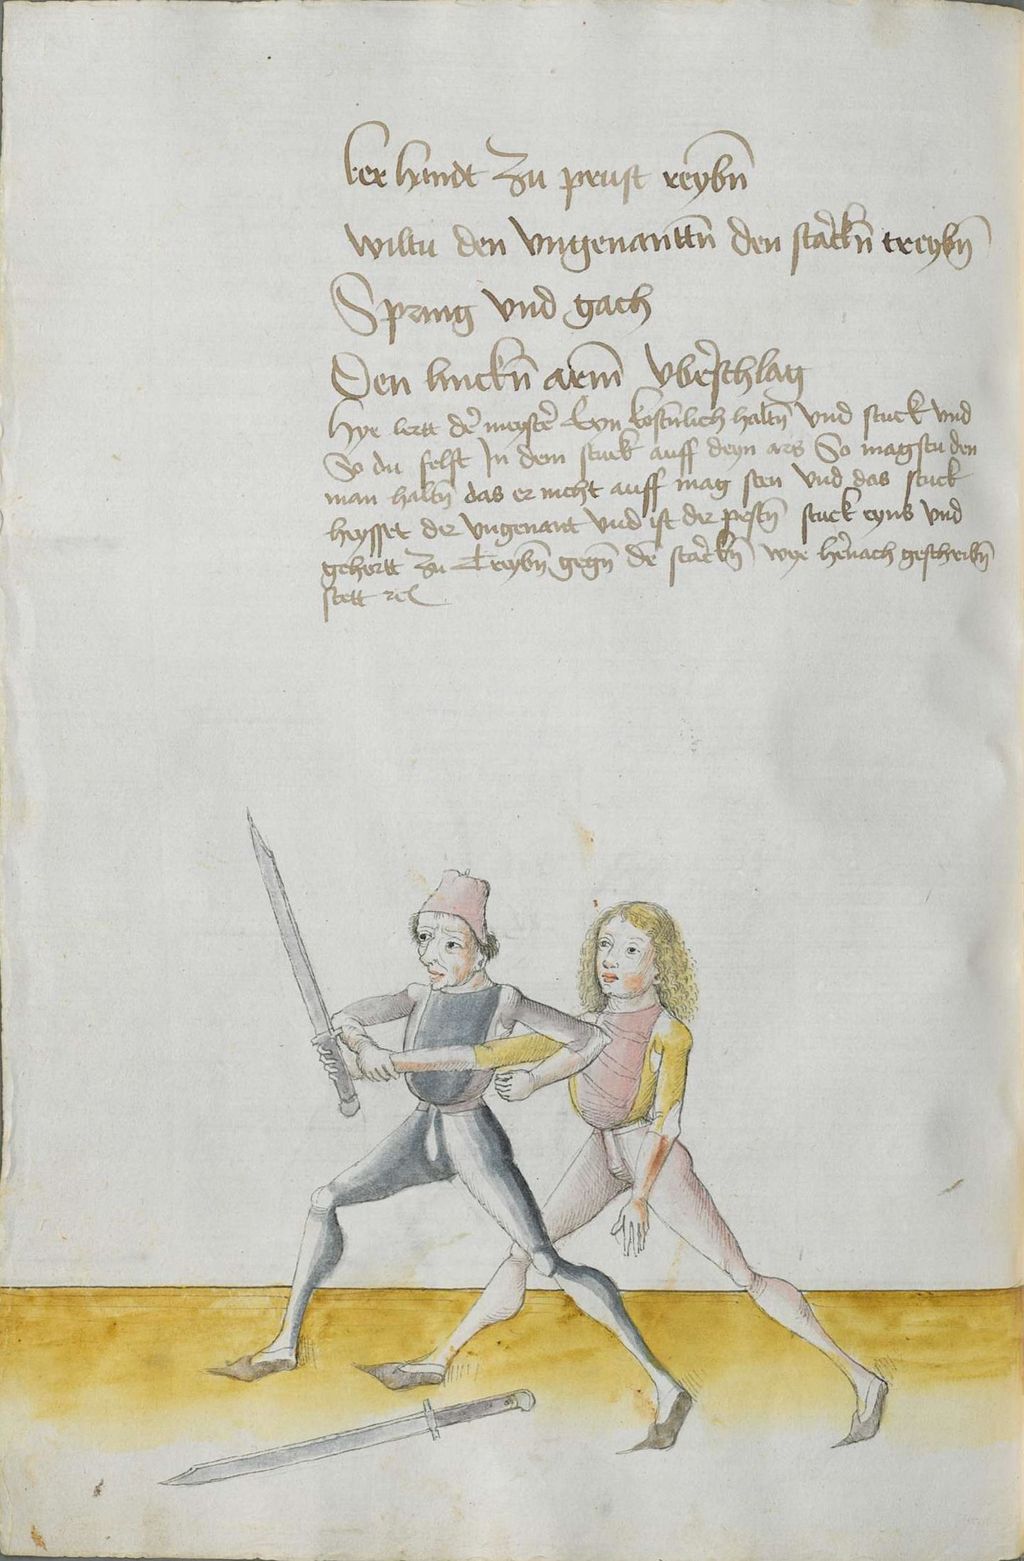 ker handt zu prust reybn̄
wiltu den vngenanttn̄ den starckn̄ treybn̄
Spring vnd gach
Den linckn̄ arm̄ vberschlag
Hye lertt der meyster Eyn kostnlich haltn̄ vnd stuck vnd
So du felst Jn dem stuck auff deyn ars So magstu den
man haltn̄ das er nicht auff mag sten vnd das stuck
heysset der vngenant vnd ist der pestn̄ stuck eyns vnd
gehortt zu Treybn̄ gegn̄ den starckn̄ wye hernach geschribn̄
stett